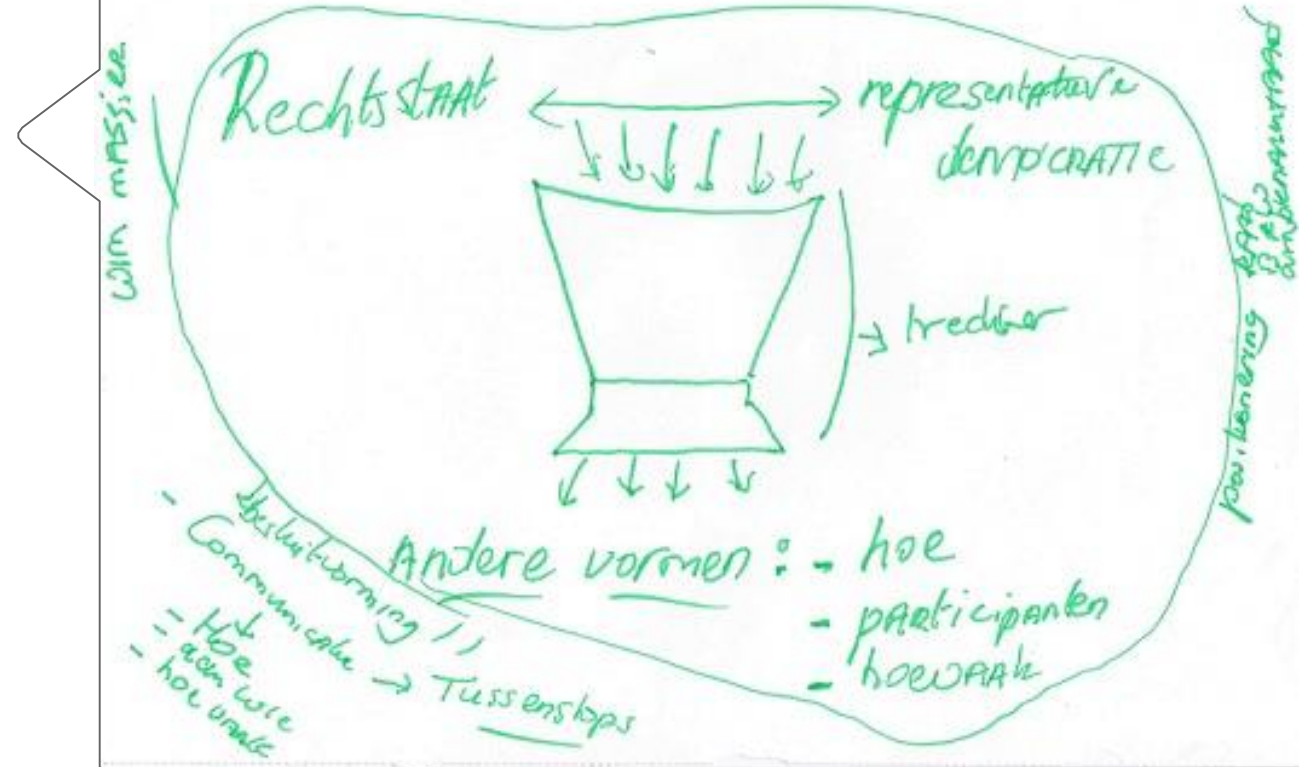 wim massier
RechtsstAAt
representatieve
democratie
trechter
Andere vormen : - hoe
- pARticipanten
- hoevAAk
- besluitvorming //
Communicatie → Tussenstops
- Hoe
- aan wie
- hoe vaak
positionering RAAD